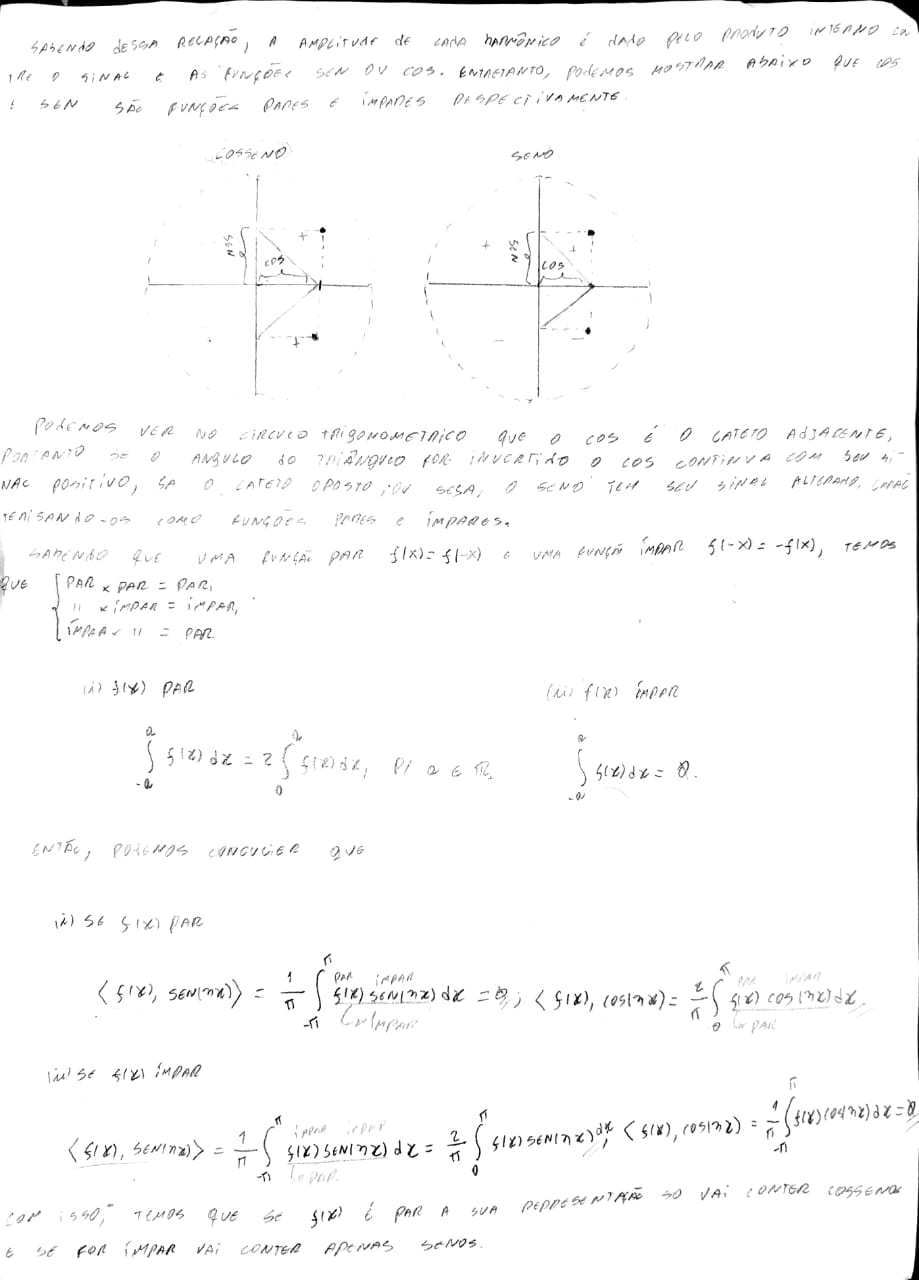 SABENDO DESSA RELAÇÃO, A AMPLITUDE DE CADA HARMÔNICO É DADO PELO PRODUTO INTERNO EN
TRE O SINAL E AS FUNÇÕES SEN OU COS. ENTRETANTO, PODEMOS MOSTRAR ABAIXO QUE COS
E SEN SÃO FUNÇÕES PARES E ÍMPARES RESPECTIVAMENTE.
COSSENO SENO
SEN + cos +
+ SEN + cos - -
PODEMOS VER NO CÍRCULO TRIGONOMETRICO QUE O COS É O CATETO ADJACENTE,
PORTANTO SE O ANGULO DO TRIÂNGULO FOR INVERTIDO O COS CONTINUA COM SEU SI-
NAL POSITIVO, JA O CATETO OPOSTO, OU SEJA, O SENO TEM SEU SINAL ALTERADO, CARAC
TERISANDO-OS COMO FUNÇÕES PARES E ÍMPARES.
SABENDO QUE UMA FUNÇÃO PAR f(x)= f(-x) E UMA FUNÇÃO ÍMPAR f(-x) = -f(x), TEMOS
QUE { PAR x PAR = PAR,
" x ÍMPAR = ÍMPAR,
ÍMPAR x " = PAR
(i) f(x) PAR (ii) f(x) ÍMPAR
∫_{-a}^{a} f(x) dx = 2 ∫_{0}^{a} f(x) dx, P/ a ∈ ℝ. ∫_{-a}^{a} f(x) dx = 0.
ENTÃO, PODEMOS CONCLUIR QUE
(i) SE f(x) PAR
⟨f(x), SEN(nx)⟩ = 1/π ∫_{-π}^{π} f(x) SEN(nx) dx = 0; ⟨f(x), cos(nx) = 2/π ∫_{0}^{π} f(x) cos(nx) dx
PAR ÍMPAR PAR IMPAR
↳ IMPAR ↳ PAR
(ii) SE f(x) ÍMPAR
⟨f(x), SEN(nx)⟩ = 1/π ∫_{-π}^{π} f(x) SEN(nx) dx = 2/π ∫_{0}^{π} f(x) SEN(nx) dx, ⟨f(x), cos(nx) = 1/π ∫_{-π}^{π} f(x) cos(nx) dx = 0
IMPAR IMPAR
↳ PAR
COM ISSO, TEMOS QUE SE f(x) É PAR A SUA REPRESENTAÇÃO SO VAI CONTER COSSENOS
E SE FOR ÍMPAR VAI CONTER APENAS SENOS.